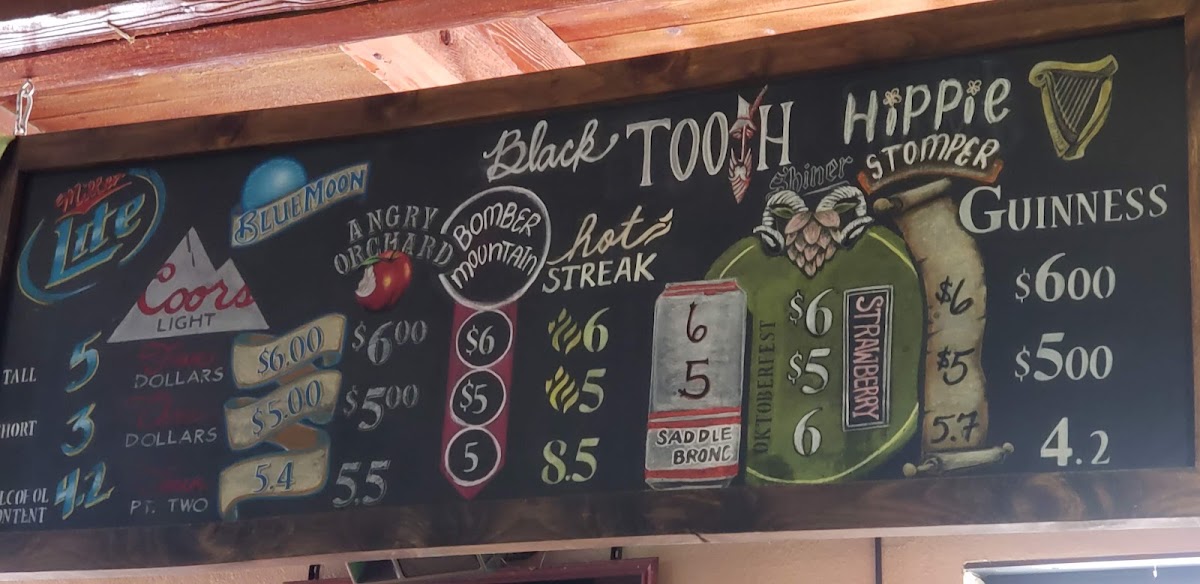 Miller
Lite
TALL 5
HORT 3
LCOHOL
ONTENT 4.2
Coors
LIGHT
DOLLARS
DOLLARS
PT. TWO
BLUE MOON
$6.00
$5.00
5.4
ANGRY
ORCHARD
$600
$500
5.5
Black TOOTH
BOMBER
MOUNTAIN
$6
$5
5
hot
STREAK
6
5
8.5
6
5
SADDLE
BRONC
Shiner
OKTOBERFEST
$6
$5
6
STRAWBERRY
HiPPie
STOMPER
$6
$5
5.7
GUINNESS
$600
$500
4.2